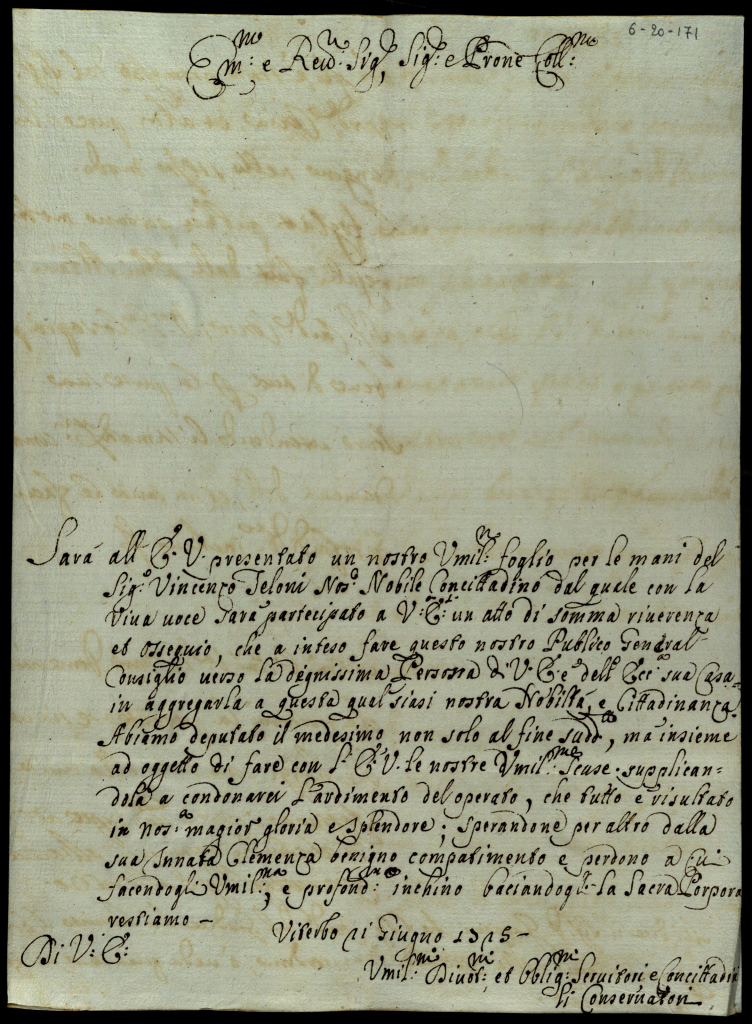 6-20-171
Em.mo e Reu.mo Sig.r, Sig.r e Prone Coll.mo
Sarà all' E.a V. presentato un nostro Vmil.mo foglio per le mani del
Sig.r Vincenzo Teloni Nos.o Nobile Concittadino dal quale con la
viva voce sarà partecipato a V.a E.a un atto di somma riuerenza
et osseguio, che a inteso fare questo nostro Publico General
Consiglio uerso la degnissima Persona di V. E. e dell' Ecc.ma sua Casa
in aggregarla a questa qual siasi nostra Nobiltà, e Cittadinanza.
Abiamo deputato il medesimo non solo al fine sudd.o, ma insieme
ad oggetto di fare con l' E.a V. le nostre Vmil.me Scuse. supplican-
dola a condonarci l'ardimento del operato, che tutto è risultato
in nos.a magior gloria e splendore; sperandone per altro dalla
sua Innata Clemenza benigno compatimento e perdono a cui
facendogli Vmil.mo, e profond.mo inchino baciandogl. la Sacra Porpora
restiamo -
Viterbo 21 Giugno 1715 -
Di V.a E.a
Vmil.mi Diuot.mi et Oblig.mi Seruitori e Concittadini
li Conseruatori